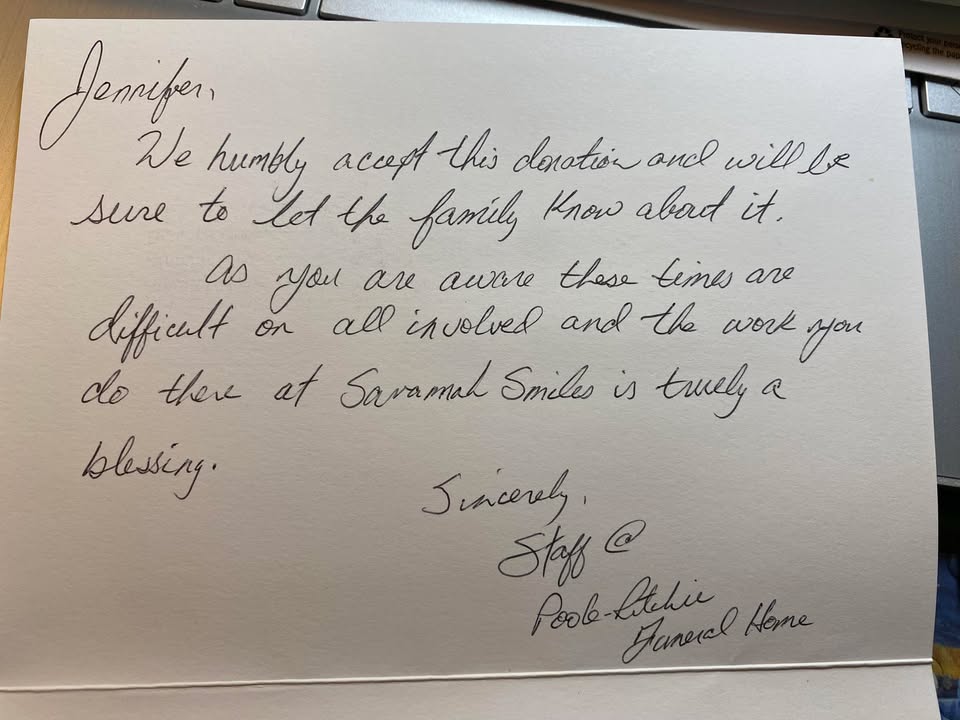 Protect your
recycling the pap
Jennifer,
We humbly accept this donation and will be
sure to let the family know about it.
As you are aware these times are
difficult on all involved and the work you
do there at Savannah Smiles is truely a
blessing.
Sincerely,
Staff @
Poole-Ritchie
Funeral Home